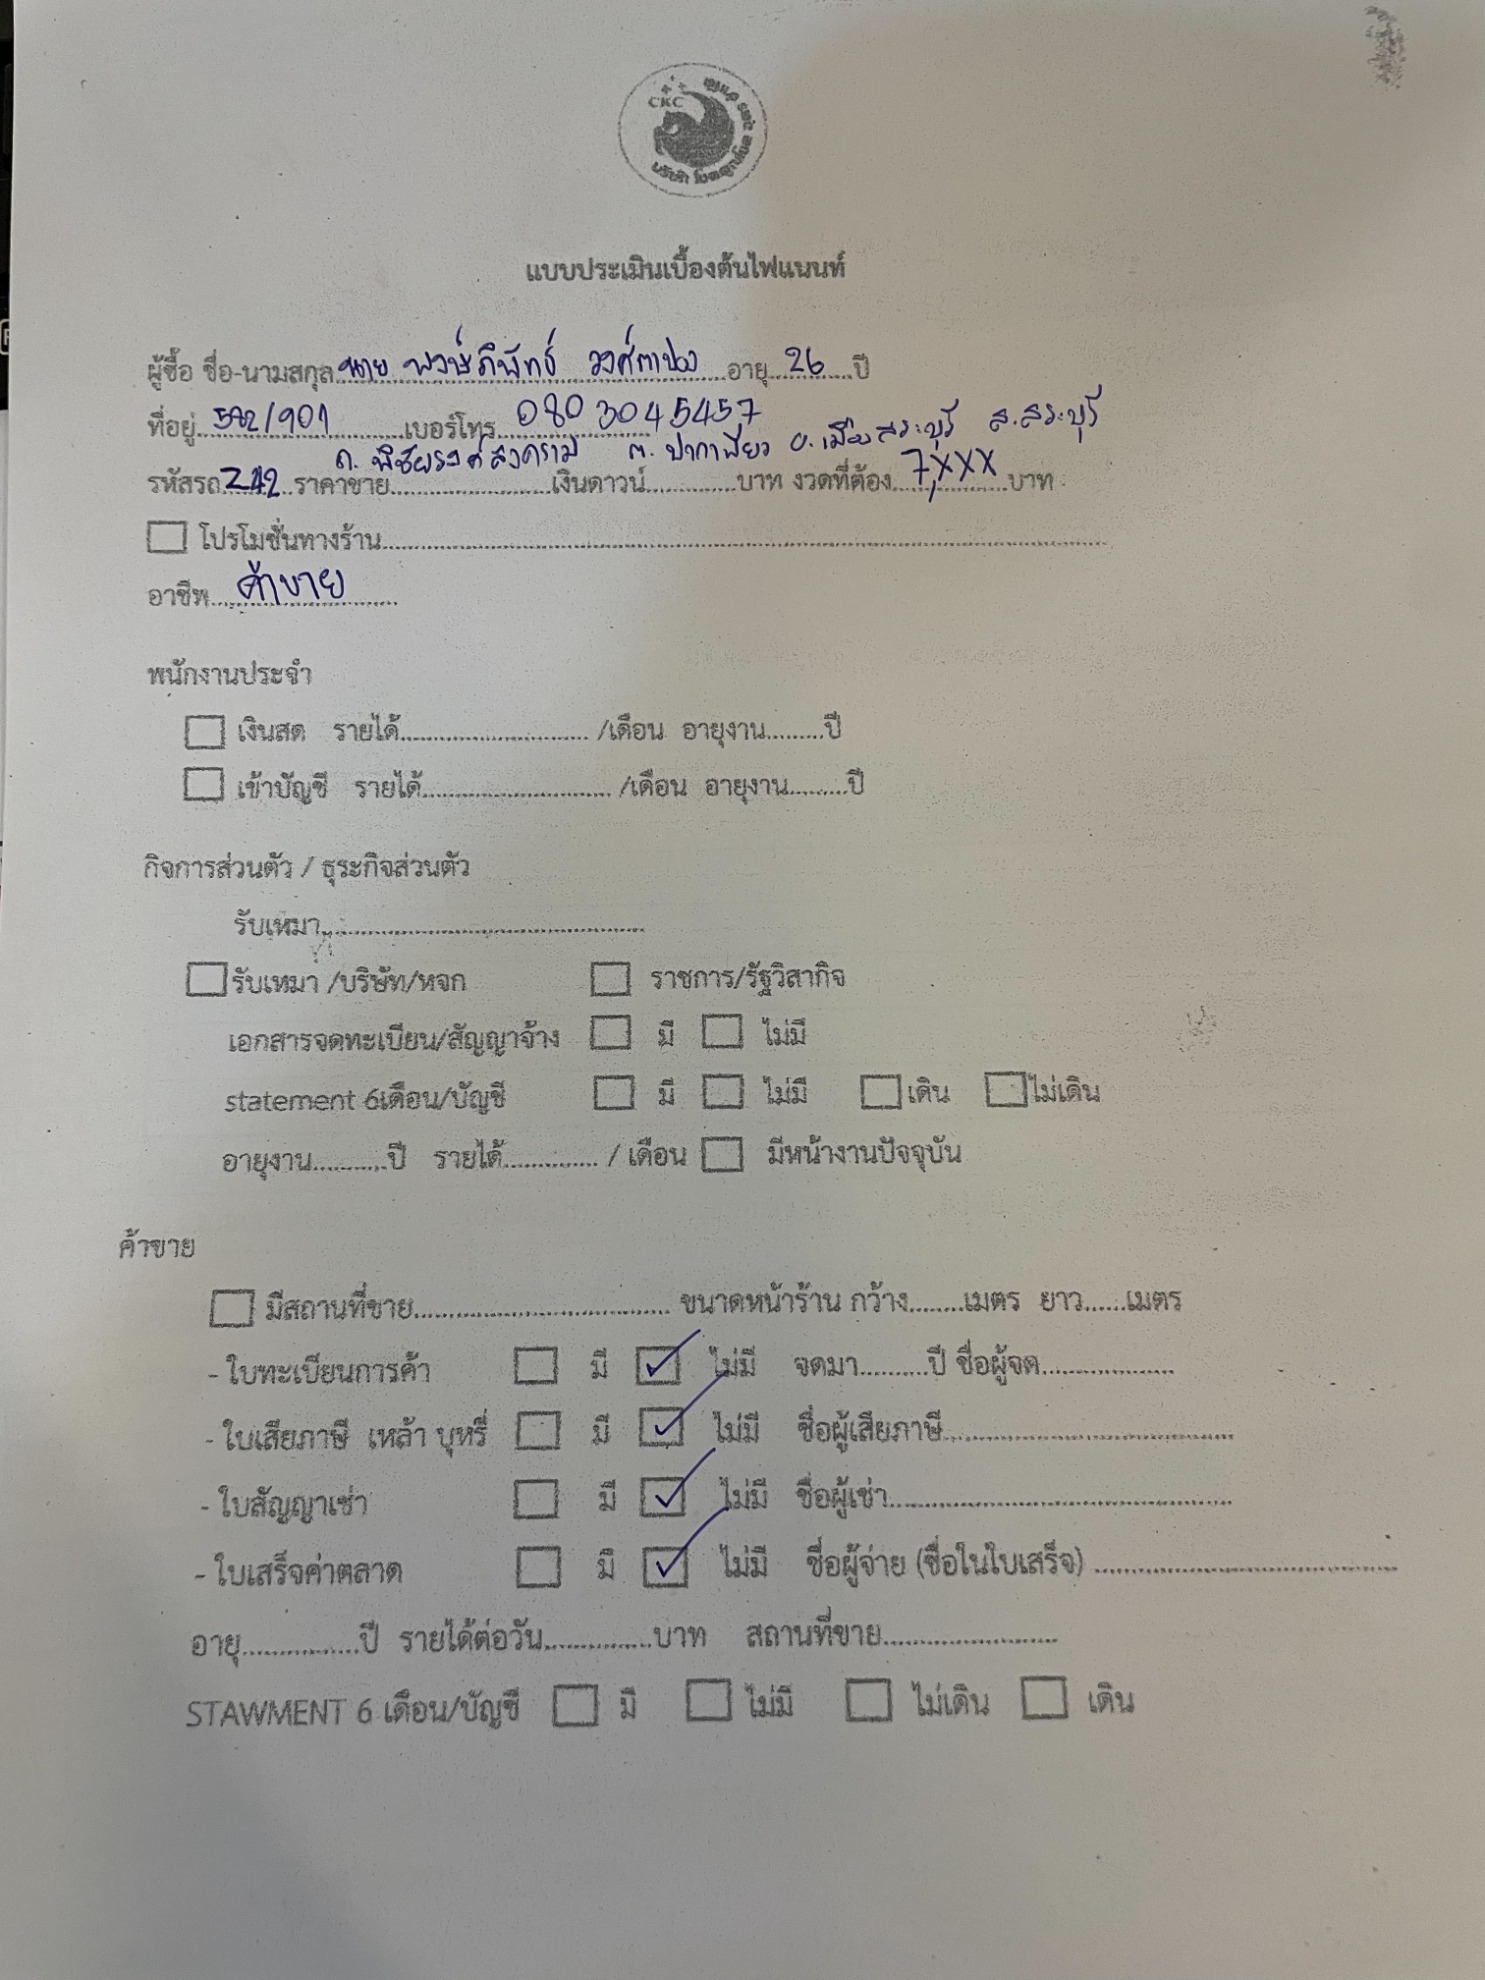 CKC
แบบประเมินเบื้องต้นไฟแนนท์
ผู้ซื้อ ชื่อ-นามสกุล นาย พงษ์ภิพัทธ์ วงศ์ตาปอง อายุ 26 ปี
ที่อยู่ 592/901 เบอร์โทร 080 3045457
ถ. พิชัยรงค์สงคราม ต. ปากเพรียว อ. เมืองสระบุรี จ. สระบุรี
รหัสรถ 242 ราคาขาย เงินดาวน์ บาท งวดที่ต้อง 7,xxx บาท
โปรโมชั่นทางร้าน
อาชีพ ค้าขาย
พนักงานประจำ
เงินสด รายได้ /เดือน อายุงาน ปี
เข้าบัญชี รายได้ /เดือน อายุงาน ปี
กิจการส่วนตัว / ธุระกิจส่วนตัว
รับเหมา
รับเหมา /บริษัท/หจก ราชการ/รัฐวิสากิจ
เอกสารจดทะเบียน/สัญญาจ้าง มี ไม่มี
statement 6เดือน/บัญชี มี ไม่มี เดิน ไม่เดิน
อายุงาน ปี รายได้ / เดือน มีหน้างานปัจจุบัน
ค้าขาย
มีสถานที่ขาย ขนาดหน้าร้าน กว้าง เมตร ยาว เมตร
- ใบทะเบียนการค้า มี ✓ ไม่มี จดมา ปี ชื่อผู้จด
- ใบเสียภาษี เหล้า บุหรี่ มี ✓ ไม่มี ชื่อผู้เสียภาษี
- ใบสัญญาเช่า มี ✓ ไม่มี ชื่อผู้เช่า
- ใบเสร็จค่าตลาด มี ✓ ไม่มี ชื่อผู้จ่าย (ชื่อในใบเสร็จ)
อายุ ปี รายได้ต่อวัน บาท สถานที่ขาย
STAWMENT 6 เดือน/บัญชี มี ไม่มี ไม่เดิน เดิน